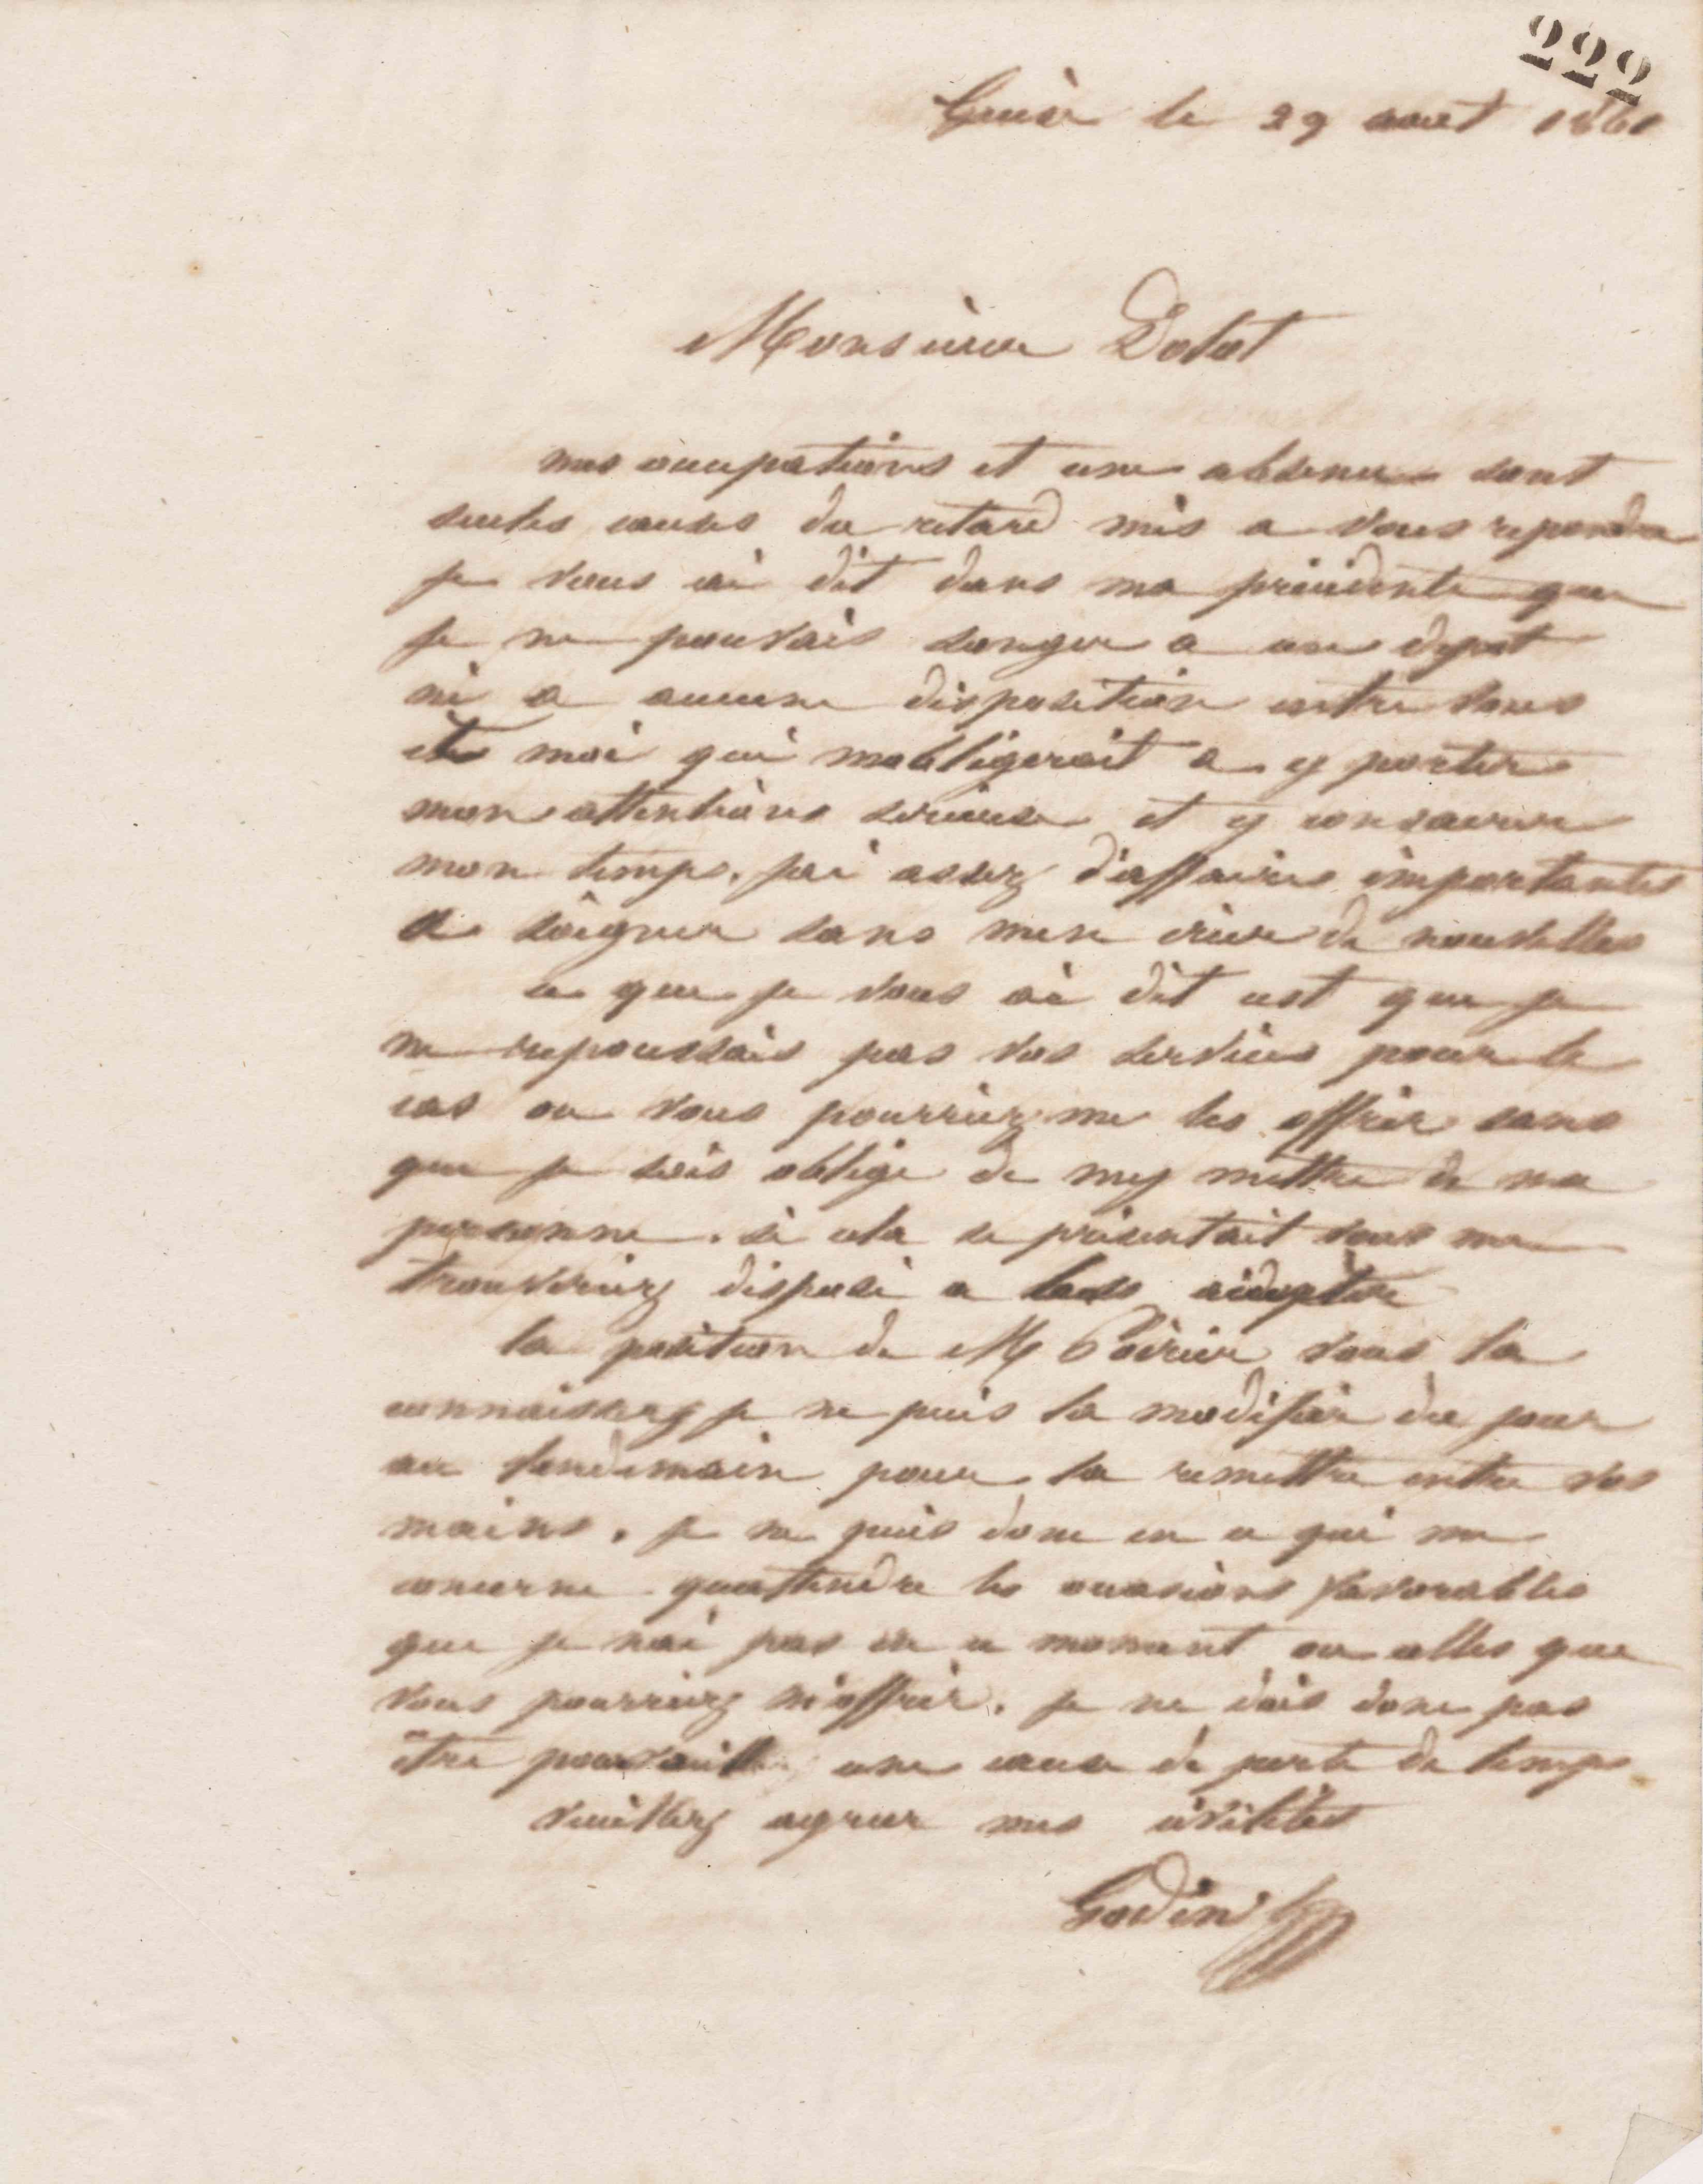 222
Guise le 29 aout 1860
Monsieur Dolot
mes ocupations et une absence sont
seules causes du retard mis a vous repondre
je vous ai dit dans ma précédente que
je ne pouvais songer a un depot
ni a aucune disposition entre vous
et moi qui mobligerait a y porter
mon attentions serieuse et y consacrer
mon temps. jai assez d'affaires importantes
a soigner sans men créer de nouvelles
ce que je vous ai dit cest que je
ne repoussais pas vos services pour le
cas ou vous pourriez me les offrir sans
que je sois obligé de my mettre de ma
personne. si cela se présentait vous me
trouveriez disposé a
la position de M Poirier vous la
connaissez je ne puis la modifier du jour
au lendemain pour la remettre entre vos
mains. je ne puis donc en ce qui me
concerne quattendre les ocasions favorables
que je nai pas en ce moment ou celles que
vous pourriez m'offrir. je ne dois donc pas
être pour une cause de perte de temps
veuillez agreer mes civilités
Godin